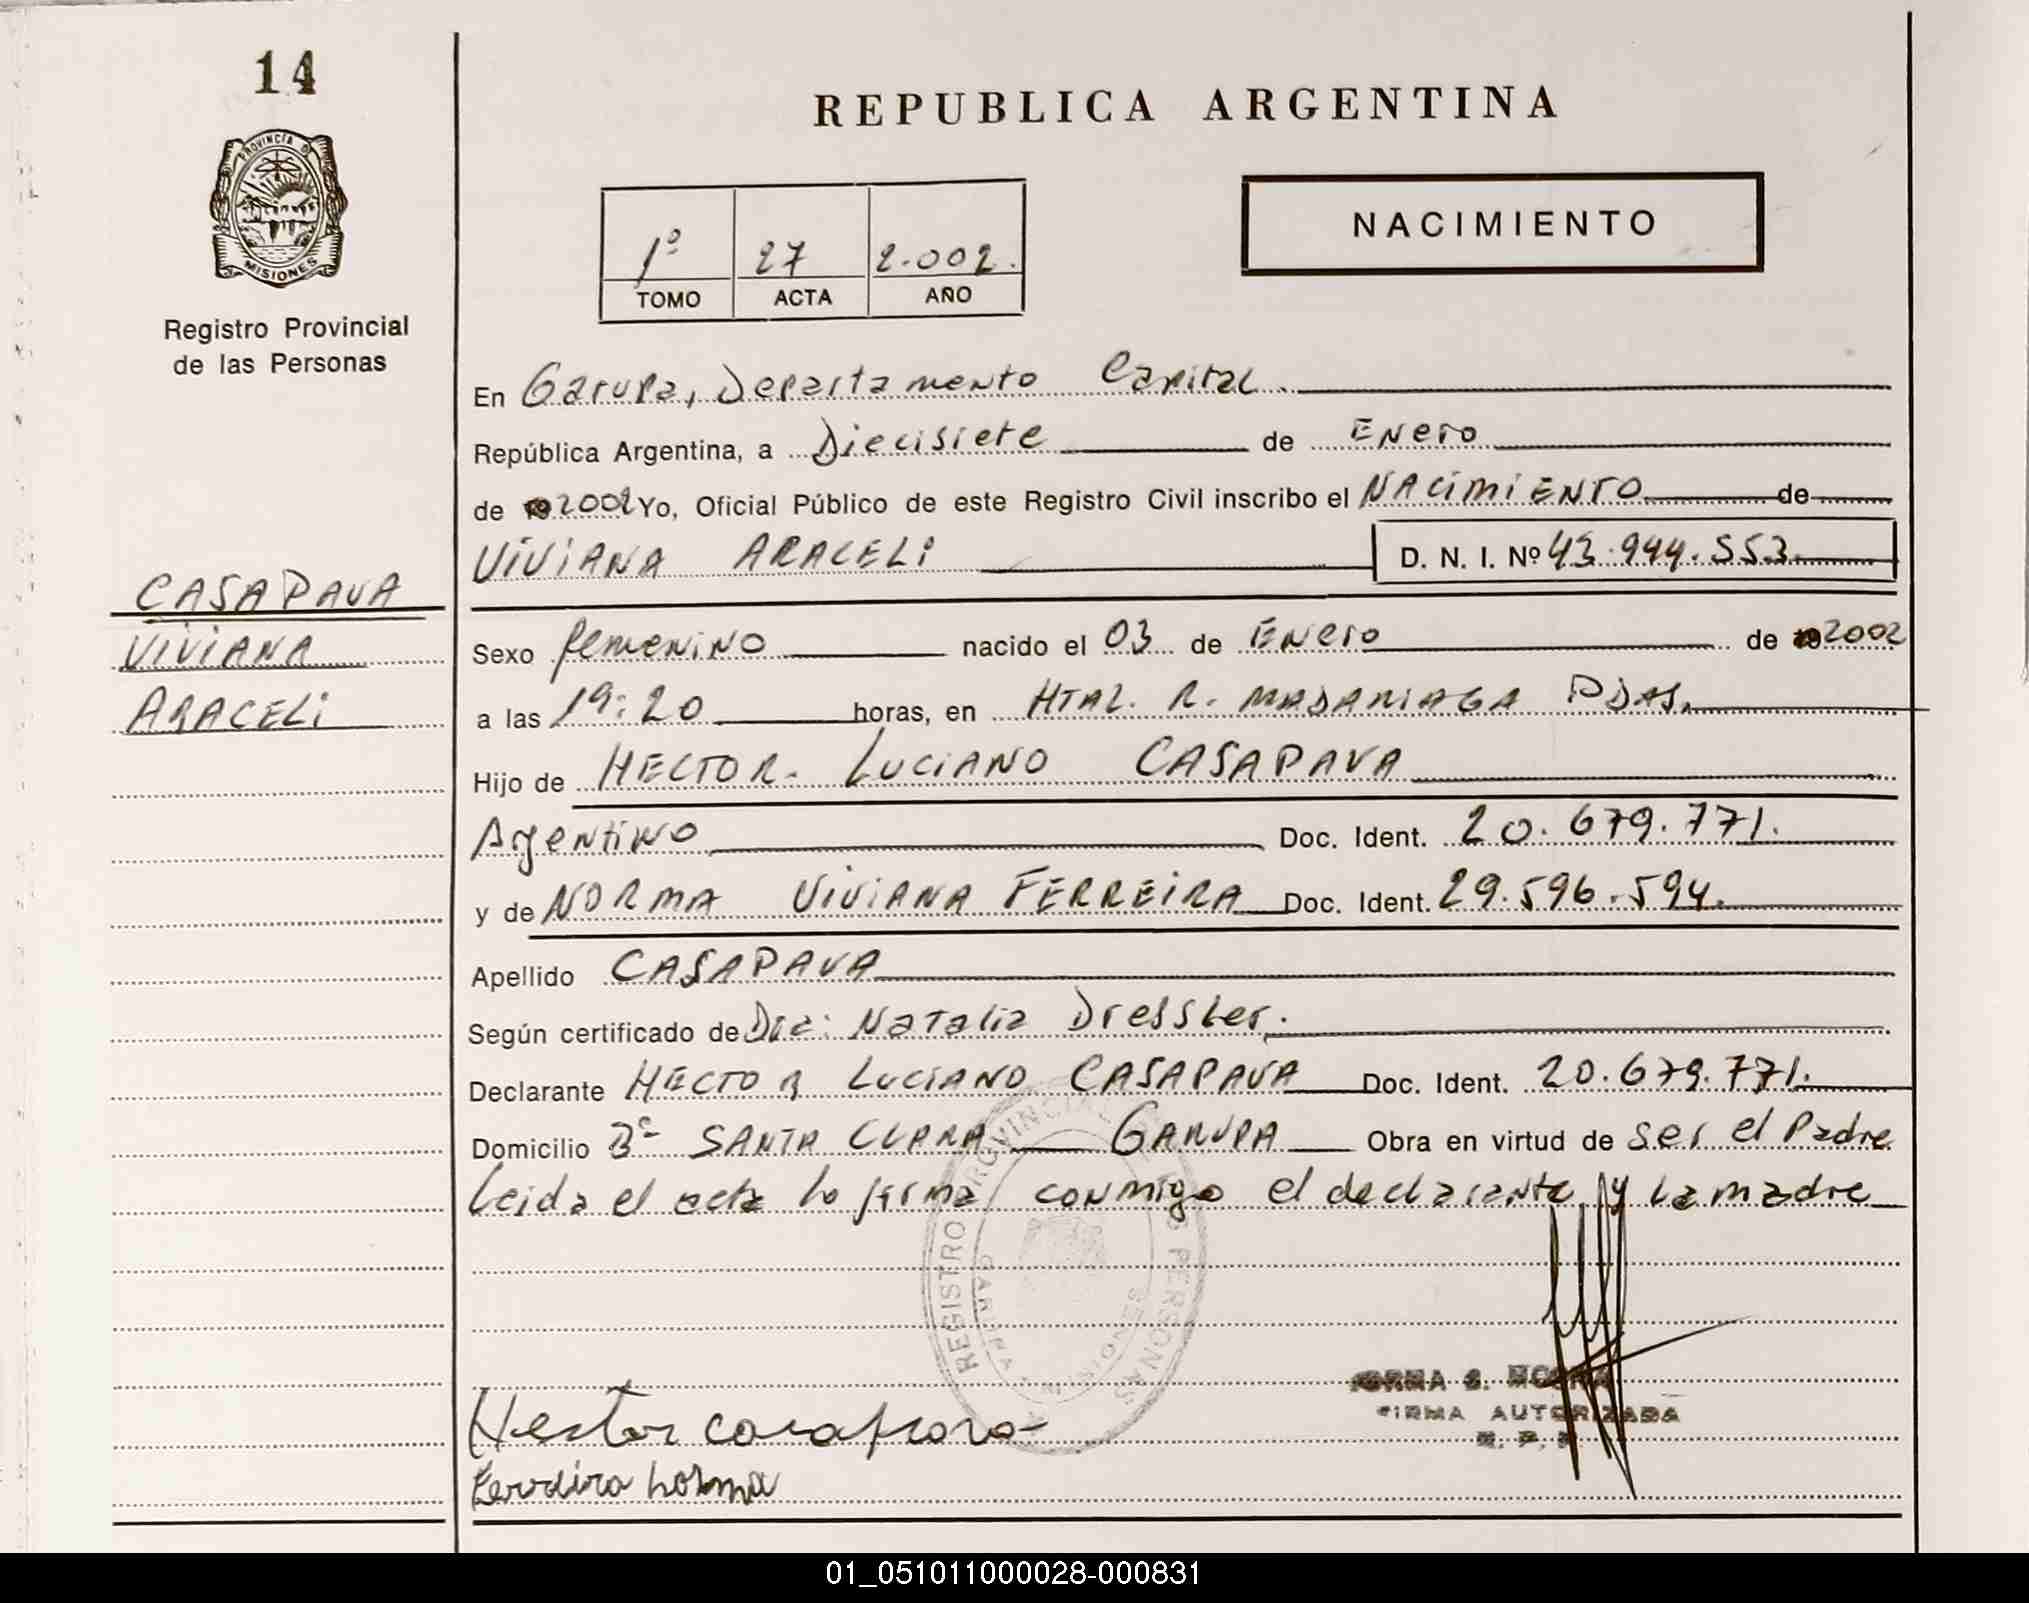 14
REPUBLICA ARGENTINA
PROVINCIA D
MISIONES
Registro Provincial
de las Personas
NACIMIENTO
1º 27 2.002.
TOMO ACTA AÑO
En Garupa, Departamento Capital.
República Argentina, a Diecisiete de Enero
de 2002 Yo, Oficial Público de este Registro Civil inscribo el NACIMIENTO de
VIVIANA ARACELI D. N. I. Nº 43.944.553.
CASAPAVA
VIVIANA
ARACELI
Sexo femenino nacido el 03 de Enero de 2002
a las 19:20 horas, en HTAL. R. MADARIAGA PDAS.
Hijo de HECTOR. LUCIANO CASAPAVA
Argentino Doc. Ident. 20.679.771.
y de NORMA VIVIANA FERREIRA Doc. Ident. 29.596.594.
Apellido CASAPAVA
Según certificado de Dra: Natalia Dressler.
Declarante HECTOR LUCIANO CASAPAVA Doc. Ident. 20.679.771.
Domicilio Bº SANTA CLARA GARUPA Obra en virtud de ser el Padre
Leida el acta la firma conmigo el declarante y la madre
REGISTRO PROVINCIAL PERSONAS
GARUPA MISIONES
NORMA S.
FIRMA AUTORIZADA
R. P.
Hector casapava
Ferreira Norma
01_051011000028-000831